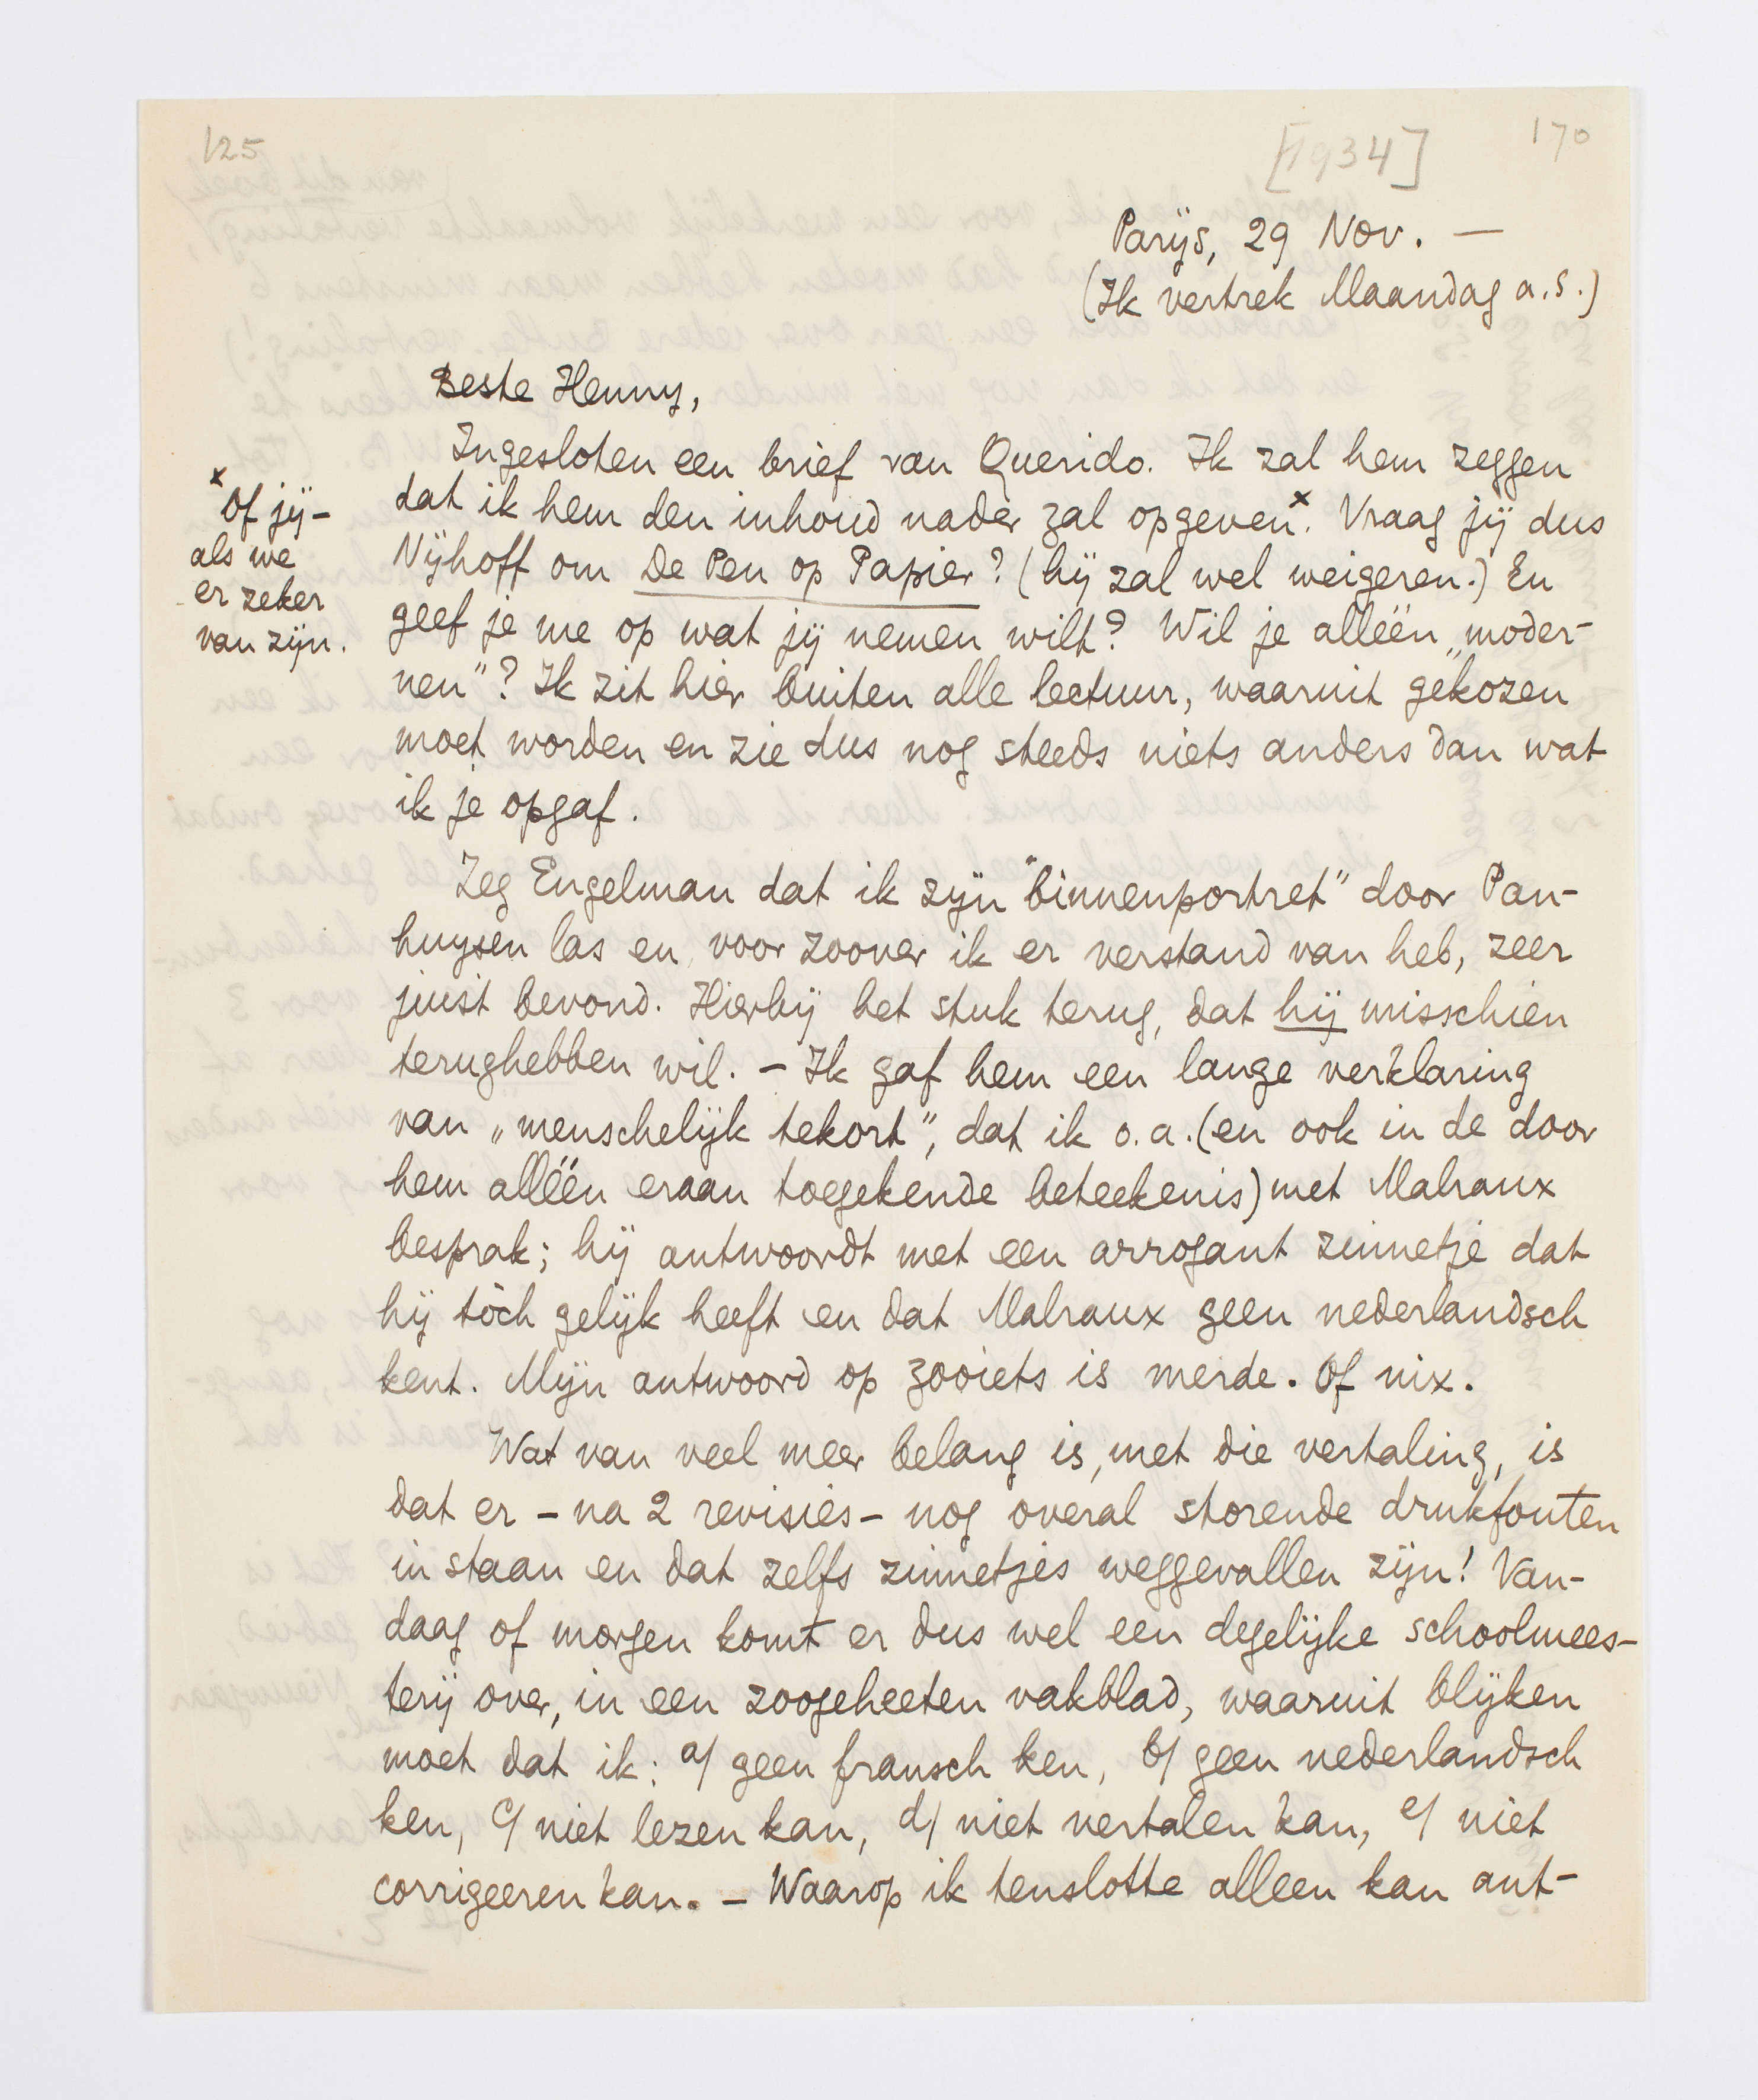 125
[1934]
170
Parijs, 29 Nov. —
(Ik vertrek Maandag a.s.)
Beste Henny,
Ingesloten een brief van Querido. Ik zal hem zeggen
dat ik hem den inhoud nader zal opgeven x. Vraag jij dus
Nijhoff om De Pen op Papier? (hij zal wel weigeren.) En
geef je me op wat jij nemen wilt? Wil je alléén „moder-
nen"? Ik zit hier buiten alle lectuur, waaruit gekozen
moet worden en zie dus nog steeds niets anders dan wat
ik je opgaf.
x Of jij –
als we
er zeker
van zijn.
Zeg Engelman dat ik zijn "binnenportret" door Pan-
huysen las en, voor zoover ik er verstand van heb, zeer
juist bevond. Hierbij het stuk terug, dat hij misschien
terughebben wil. – Ik gaf hem een lange verklaring
van „menschelijk tekort", dat ik o.a. (en ook in de door
hem alléén eraan toegekende beteekenis) met Malraux
besprak; hij antwoordt met een arrogant zinnetje dat
hij tòch gelijk heeft en dat Malraux geen nederlandsch
kent. Mijn antwoord op zooiets is merde. Of nix.
Wat van veel meer belang is, met die vertaling, is
dat er – na 2 revisies – nog overal storende drukfouten
in staan en dat zelfs zinnetjes weggevallen zijn! Van-
daag of morgen komt er dus wel een degelijke schoolmees-
terij over, in een zoogeheeten vakblad, waaruit blijken
moet dat ik: a/ geen fransch ken, b/ geen nederlandsch
ken, c/ niet lezen kan, d/ niet vertalen kan, e/ niet
corrigeeren kan. – Waarop ik tenslotte alleen kan ant-